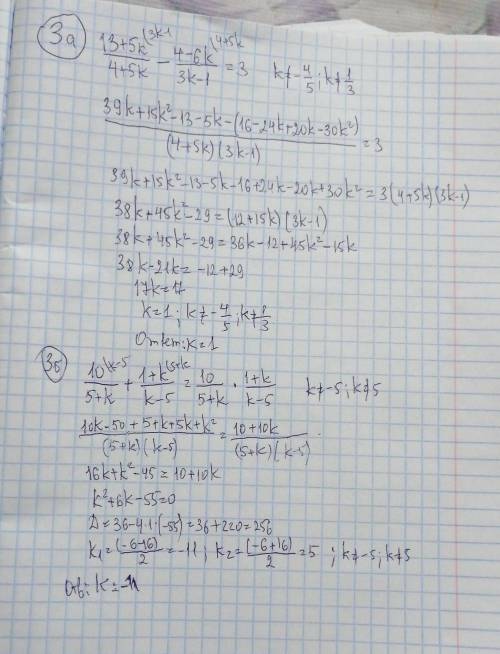 3а
(13+5k)/(4+5k) ^(3k-1 - (4-6k)/(3k-1) ^(4+5k = 3   k≠-4/5; k≠1/3
(39k+15k²-13-5k-(16-24k+20k-30k²))/((4+5k)(3k-1)) = 3
39k+15k²-13-5k-16+24k-20k+30k²=3(4+5k)(3k-1)
38k+45k²-29=(12+15k)(3k-1)
38k+45k²-29=36k-12+45k²-15k
38k-21k=-12+29
17k=17
k=1; k≠-4/5; k≠1/3
Ответ: k=1
3б
10/(5+k) ^(k-5 + (1+k)/(k-5) ^(5+k = 10/(5+k) · (1+k)/(k-5)   k≠-5; k≠5
(10k-50+5+k+5k+k²)/((5+k)(k-5)) = (10+10k)/((5+k)(k-5))
16k+k²-45=10+10k
k²+6k-55=0
Д=36-4·1·(-55)=36+220=256
k₁=(-6-16)/2=-11; k₂=(-6+16)/2=5; k≠-5; k≠5
Отв: k=-11